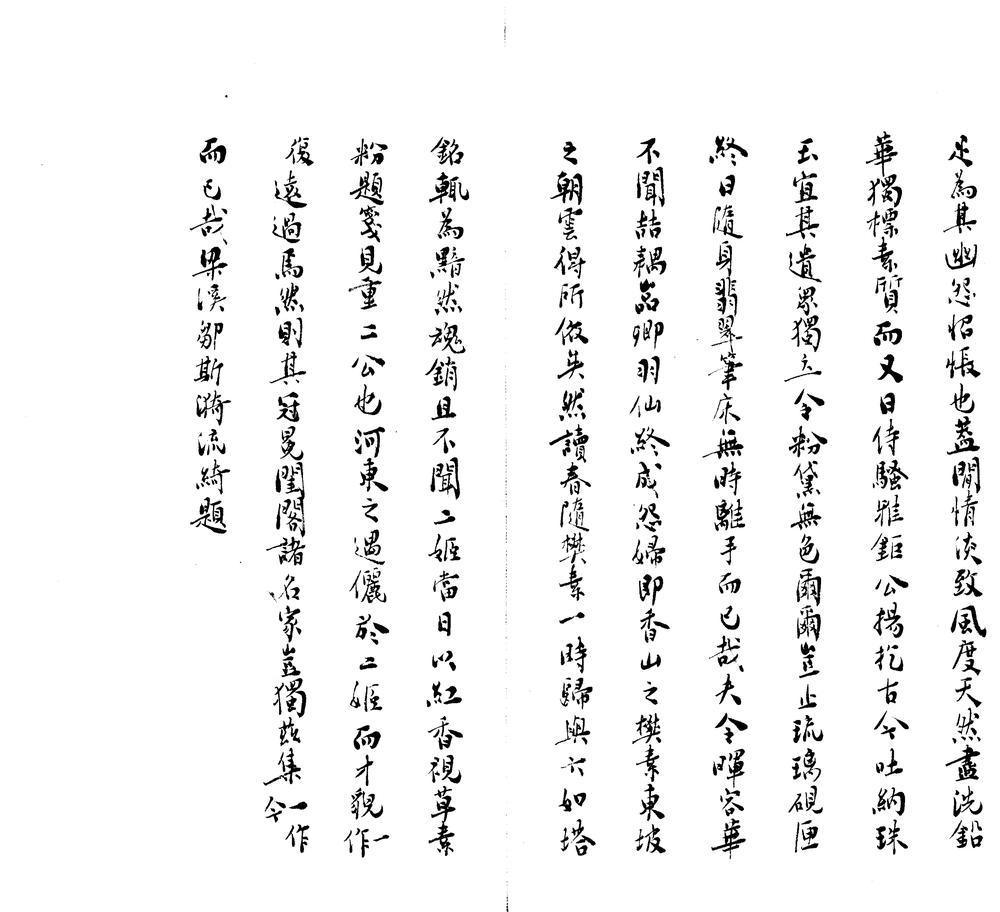 足為其幽怨怊悵也蓋閒情淡致風度天然盡洗鉛
華獨標素質而又日侍騷雅鉅公揚扢古今吐納珠
玉宜其遺眾獨立令粉黛無色爾爾豈止琉璃硯匣
終日隨身翡翠筆床無時離手而已哉夫令暉容華
不聞喆耦品卿羽仙終成怨婦即香山之樊素東坡
之朝雲得所倣矣然讀春隨樊素一時歸與六如塔
銘輒為黯然魂銷且不聞二姬當日以紅香視草素
粉題箋見重二公也河東之遇儷於二姬而才貌一作
復遠過焉然則其冠冕閨閣諸名家豈獨茲集一作今
而已哉梁溪鄒斯漪流綺題